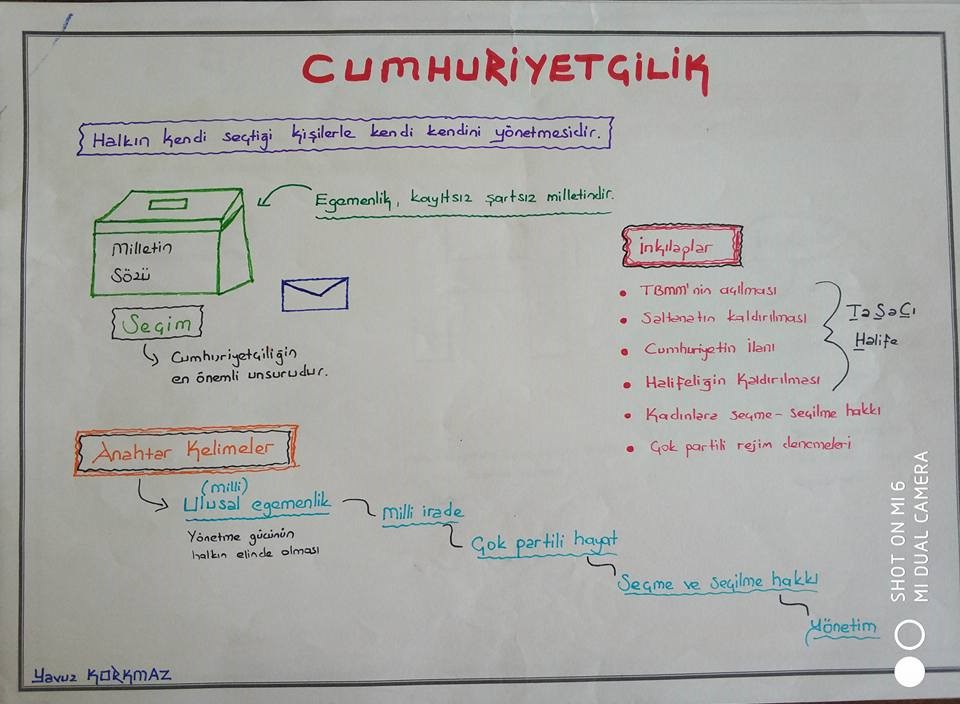 CUMHURİYETÇİLİK
Halkın kendi seçtiği kişilerle kendi kendini yönetmesidir.
Egemenlik, kayıtsız şartsız milletindir.
Milletin
Sözü
Seçim
Cumhuriyetçiliğin
en önemli unsurudur.
İnkılaplar
• TBMM'nin açılması
• Saltanatın kaldırılması
• Cumhuriyetin ilanı
• Halifeliğin kaldırılması
• Kadınlara seçme-seçilme hakkı
• Çok partili rejim denemeleri
TaSaCı
Halife
Anahtar Kelimeler
(milli)
Ulusal egemenlik
Yönetme gücünün
halkın elinde olması
Milli irade
Çok partili hayat
Seçme ve seçilme hakkı
Yönetim
Yavuz KORKMAZ
SHOT ON MI 6
MI DUAL CAMERA